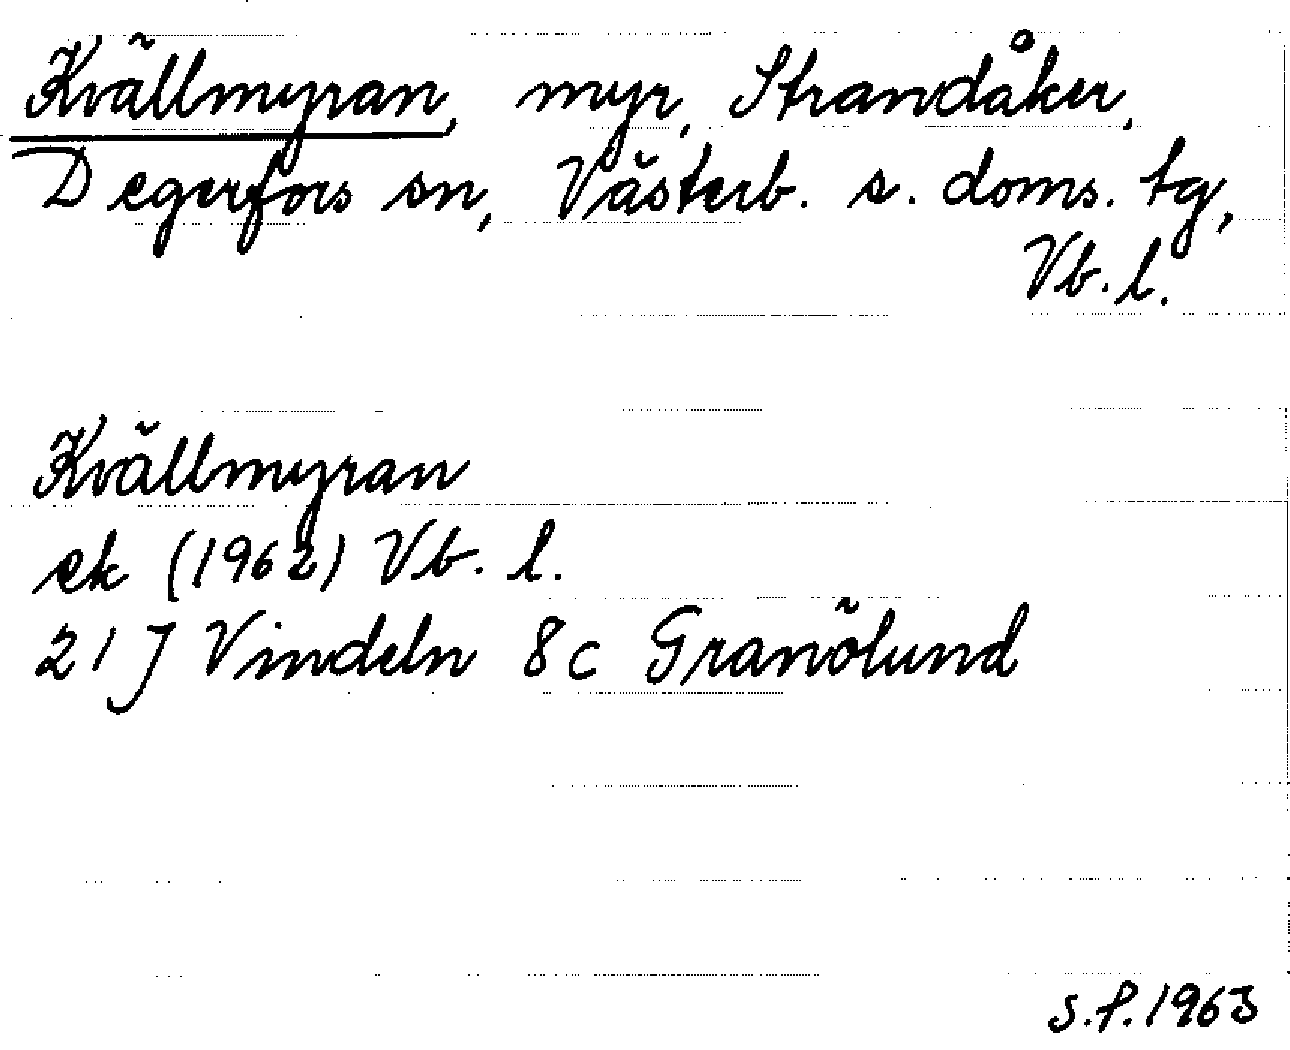 Kvällmyran, myr, Strandåker,
Degerfors sn, Västerb. s. doms. tg,
Vb. l.
Kvällmyran
ek (1962) Vb. l.
21 J Vindeln 8c Granölund
S.P. 1963